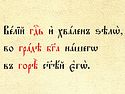 Вели́й гдⷭ҇ь и҆ хвале́нъ ѕѣлѡ̀,
во гра́дѣ бг҃а на́шегѡ
въ горѣ̀ ст҃ѣ́й є҆гѡ̀.